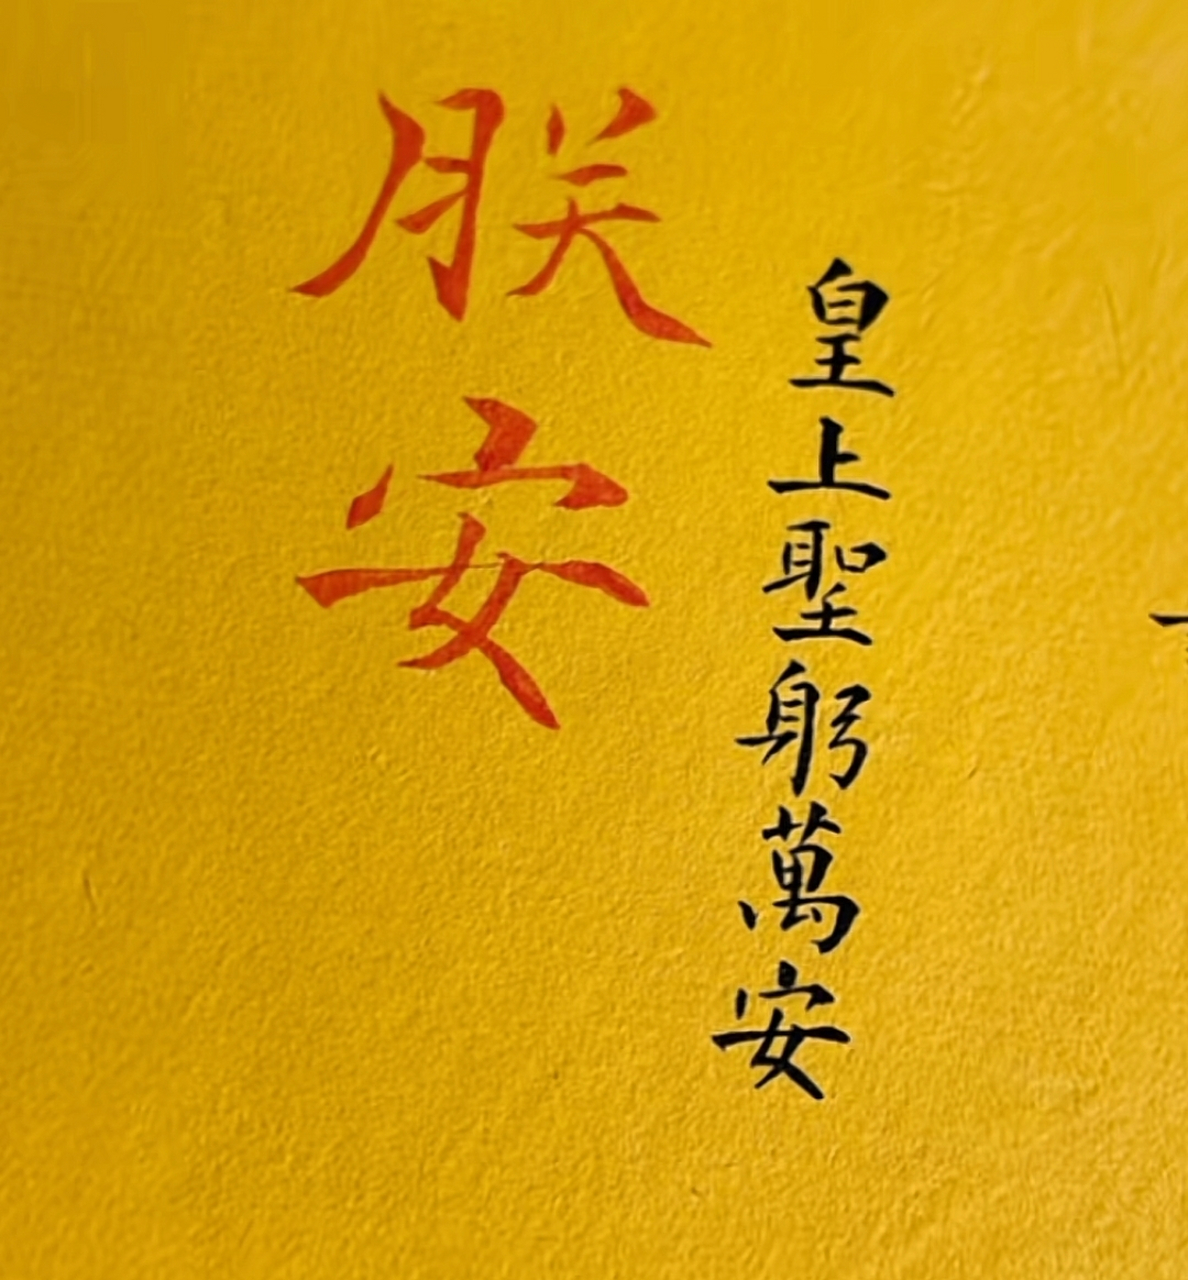 皇上聖躬萬安
朕安